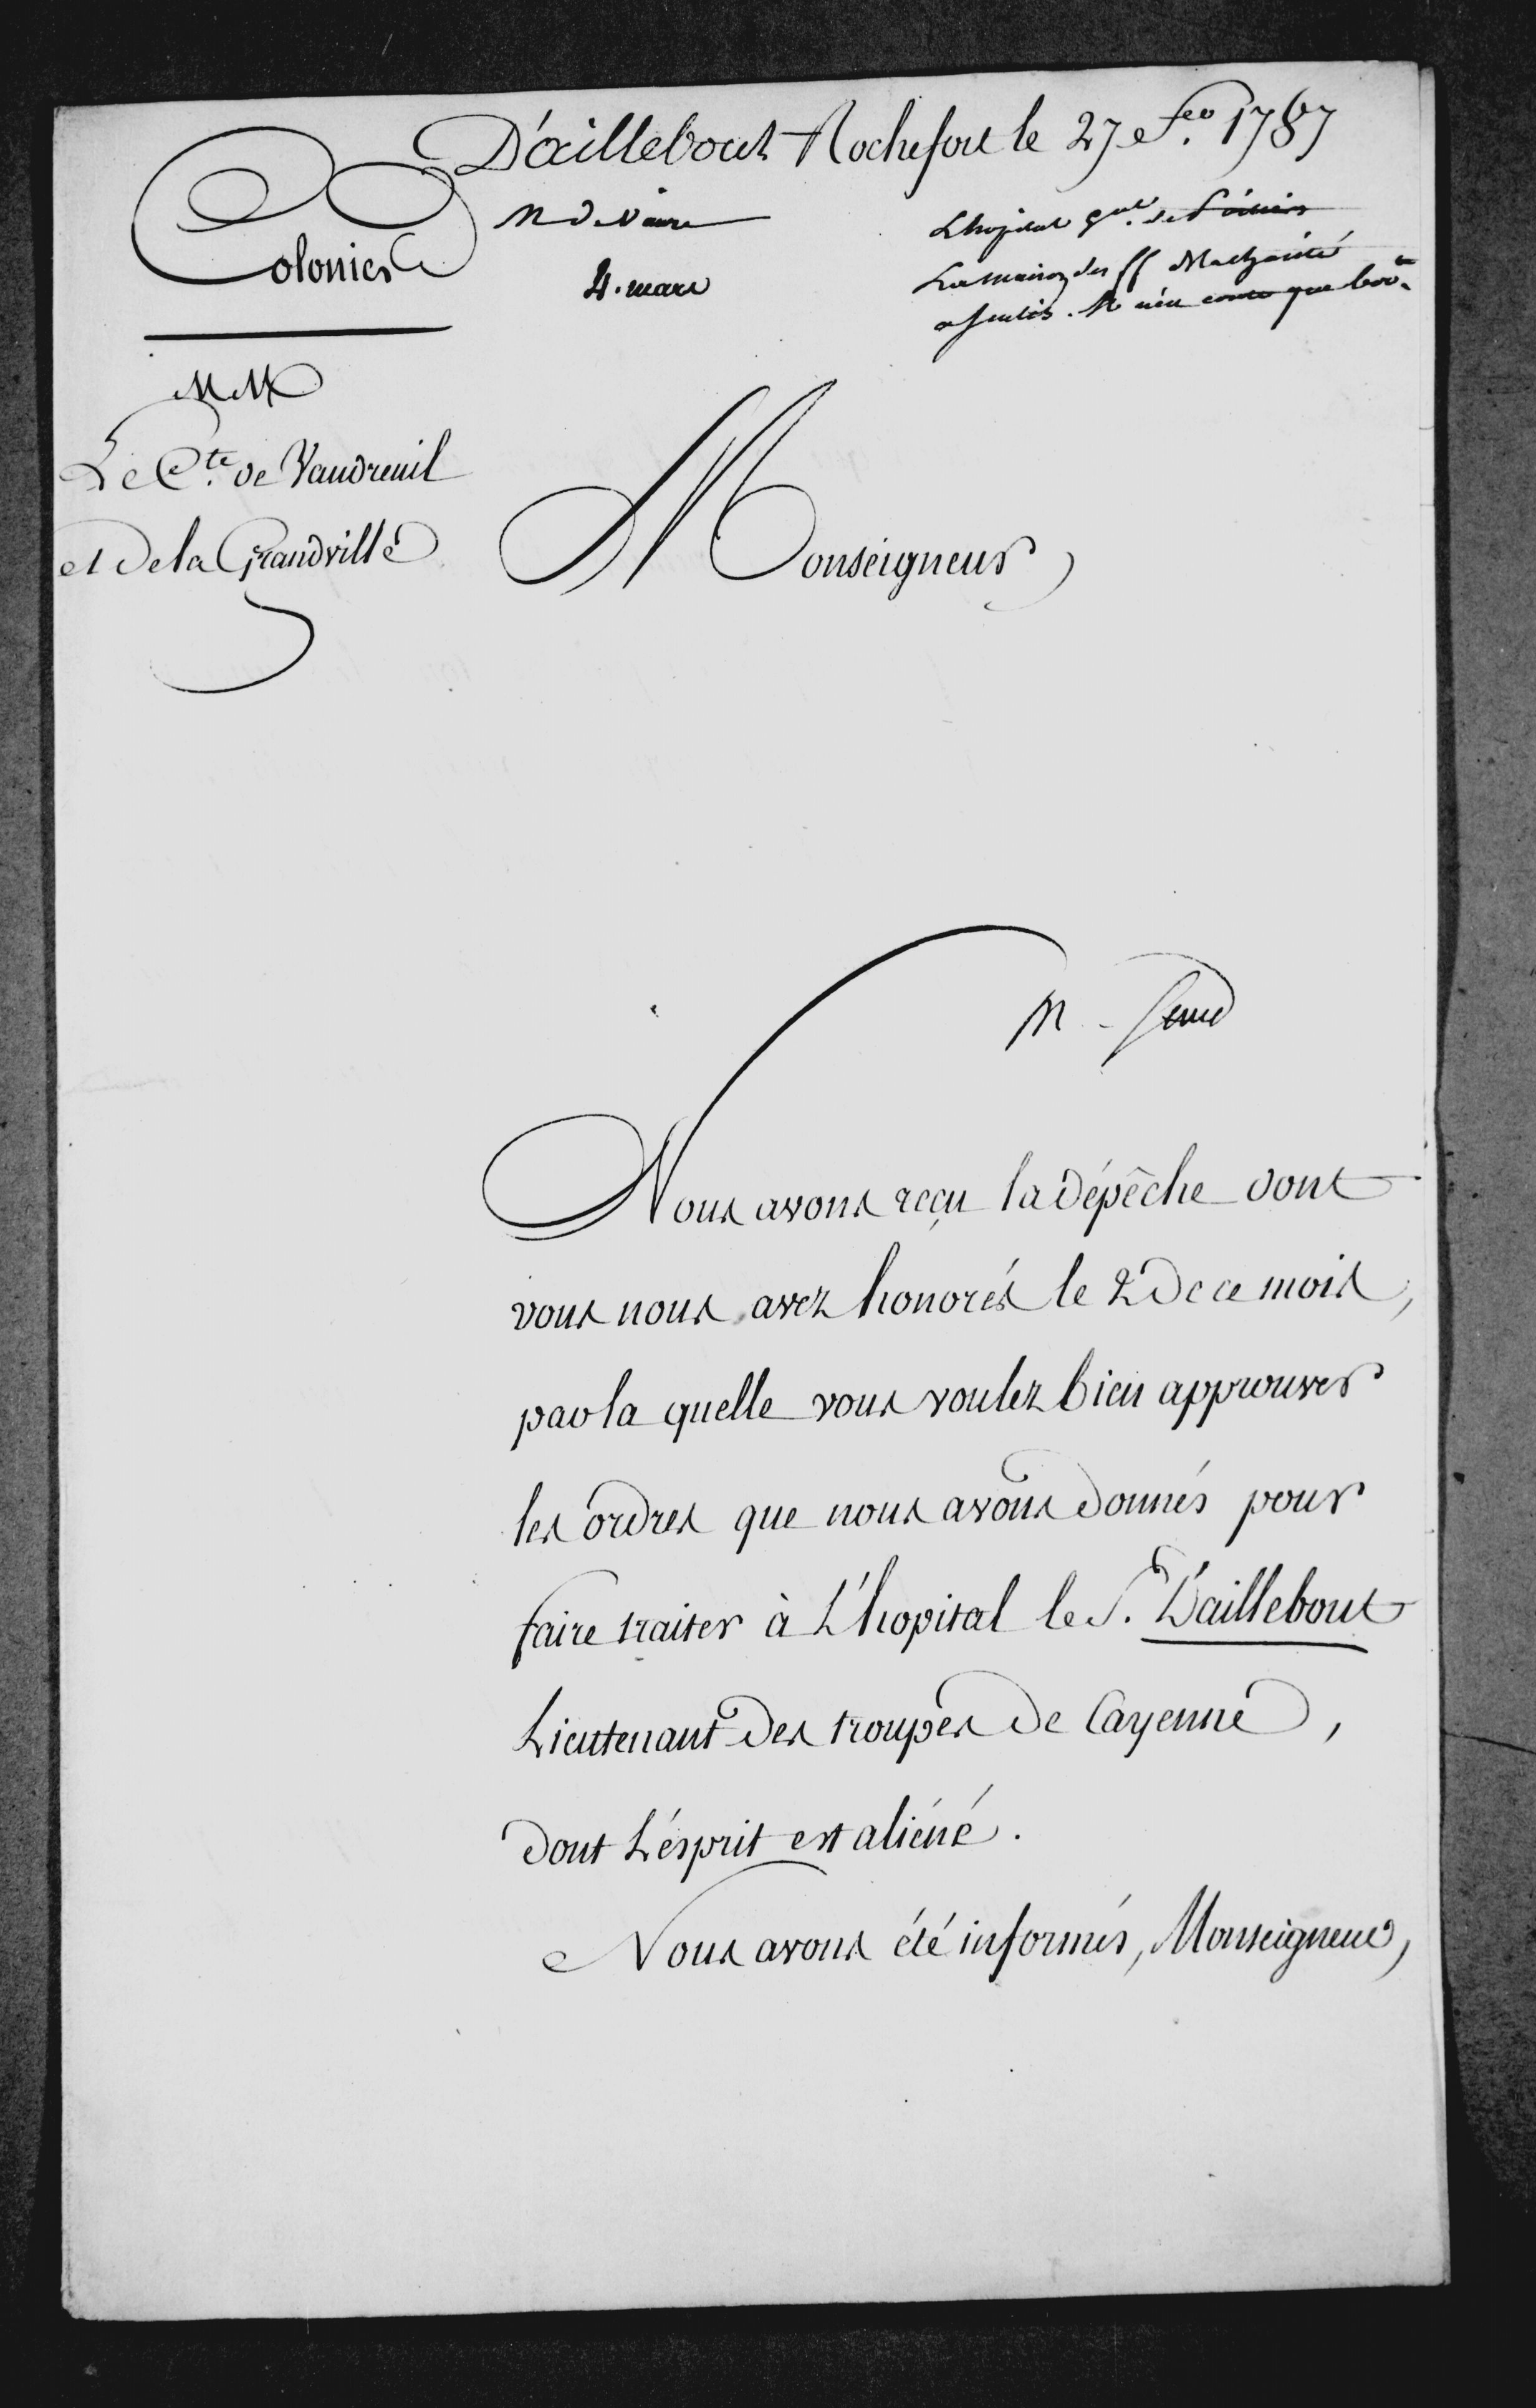 D'aillebout Rochefort le 27 feo. 1787
Colonies
M De Vaivre
4. mars
L'hopital gal. de Poitiers
La maison des ff De la Charité
a Senlis. Il n'en coute que 600.tt
MM
Le Cte. de Vaudreuil
et De la Grandville
Monseigneur,
M
Nous avons reçu la dépêche dont
vous nous avez honorés le 2 De ce mois,
par la quelle vous voulez bien approuver
les ordres que nous avons donnés pour
faire traiter à L'hopital le Sr. D'aillebout
Lieutenant des troupes de Cayenne,
dont L'ésprit est aliéné.
Nous avons été informés, Monseigneur,